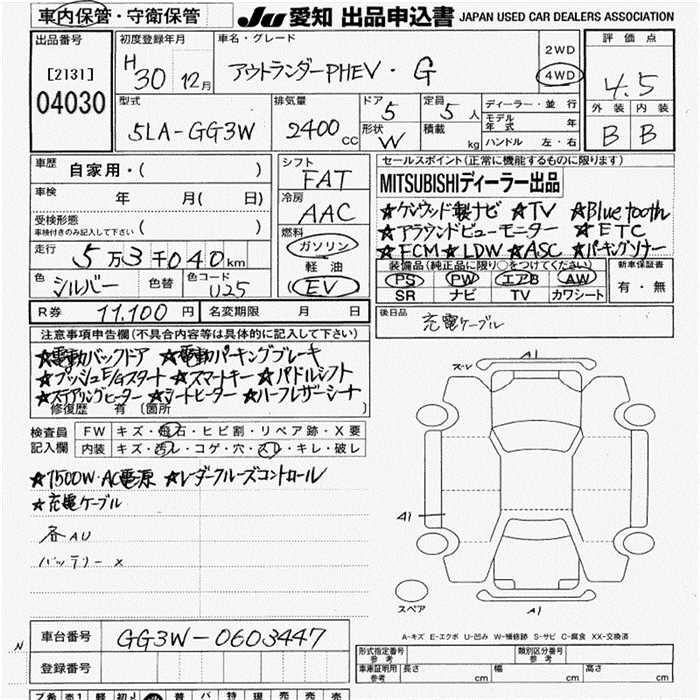 車内保管・守衛保管
JU 愛知 出品申込書 JAPAN USED CAR DEALERS ASSOCIATION
出品番号
[2131]
04030
初度登録年月
H 30 12月
車名・グレード
アウトランダーPHEV・G
2WD
4WD
評価点
4.5
外装 内装
B B
型式
5LA-GG3W
排気量
2400 cc
ドア 5
形状 W
定員 5 人
積載 kg
ディーラー・並行
モデル年式 年
ハンドル 左・右
車歴 自家用・( )
車検 年 月( 日)
受検形態
車検付きのみ記入して下さい ( )
走行 5万3千040km
色 シルバー 色替 色コード U25
シフト
FAT
冷房
AAC
燃料
ガソリン
軽油
EV
セールスポイント(正常に機能するものに限ります)
MITSUBISHIディーラー出品
★ケンウッド製ナビ ★TV ★Bluetooth
★アラウンドビューモニター ★ETC
★FCM ★LDW ★ASC ★パーキングソナー
装備品(純正品に限り○をつけてください)
PS PW エアB AW
SR ナビ TV カワシート
新車保証書
有・無
R券 11,100円 名変期限 月 日
後日品
充電ケーブル
注意事項申告欄(不具合内容等は具体的に記入して下さい)
★電動バックドア ★電動パーキングブレーキ
★プッシュE/Gスタート ★スマートキー ★パドルシフト
★ステアリングヒーター ★シートヒーター ★ハーフレザーシート
修復歴 有 〔箇所 〕
検査員記入欄
FW キズ・飛石・ヒビ割・リペア跡・X要
内装 キズ・汚レ・コゲ・穴・スレ・キレ・破レ
★1500W・AC電源 ★レーダークルーズコントロール
★充電ケーブル
各AU
バッテリー×
スレ A1
A1
スペア
A1
A-キズ E-エクボ U-凹み W-補修跡 S-サビ C-腐食 XX-交換済
車台番号 GG3W-0603447
登録番号
形式指定番号 参考
類別区分番号 参考
車庫証明用 参考 長さ cm 幅 cm 高さ cm